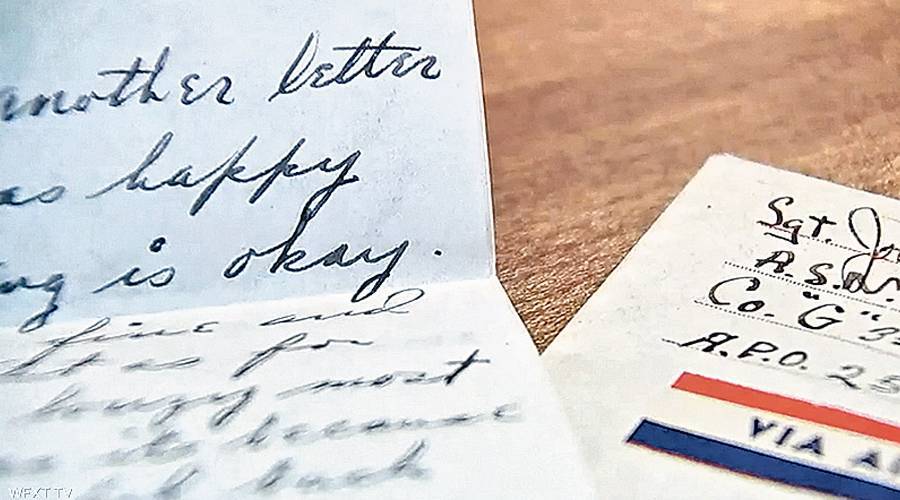 another letter
as happy
ing is okay.
fine and
as for
lousy most
its because
back
Sgt. Jo
A.S.N.
Co. "G" 3
A.P.O. 25
VIA A
WFXT TV